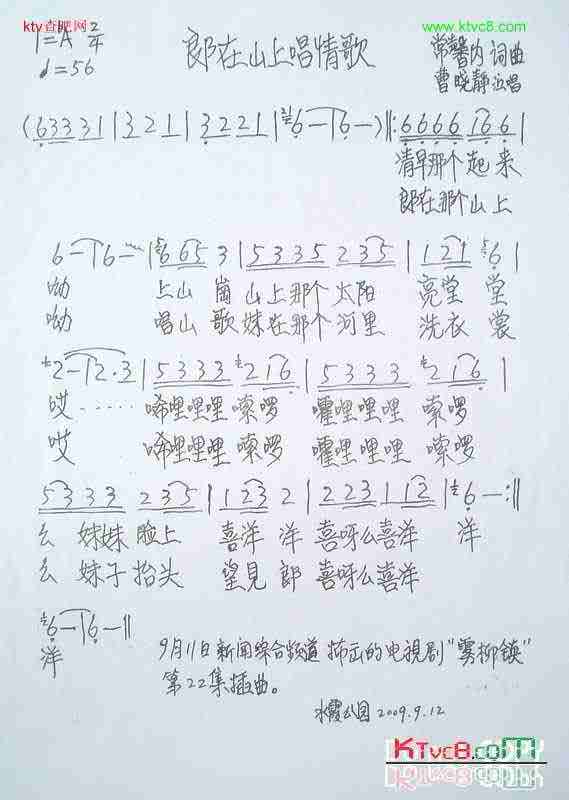 ktv查吧网
www.ktvc8.com
1=A 2/4
♩=56
郎在山上唱情歌
常馨内 词曲
曹晓静 演唱
(63331|321|32221|6-|6-)‖:6666166|
清早那个起来
郎在那个山上
6-|6-|6653|5335235|121 6|
呦 上山 崗 山上那个 太阳 亮堂 堂
呦 唱山 歌 妹在那个 河里 洗衣 裳
2-|2·3|5333216|5333216|
哎…… 唏哩哩哩 嗦啰 嚯哩哩哩 嗦啰
哎 唏哩哩哩 嗦啰 嚯哩哩哩 嗦啰
5333235|1232|223112|6-:‖
幺 妹妹 脸上 喜洋 洋 喜呀么喜洋 洋
幺 妹子 抬头 望見 郎 喜呀么喜洋
6-|6-‖
洋
9月11日新闻综合频道 播出的电視剧"雾柳镇"
第22集插曲。
水霞公园 2009.9.12
KTvc8.com